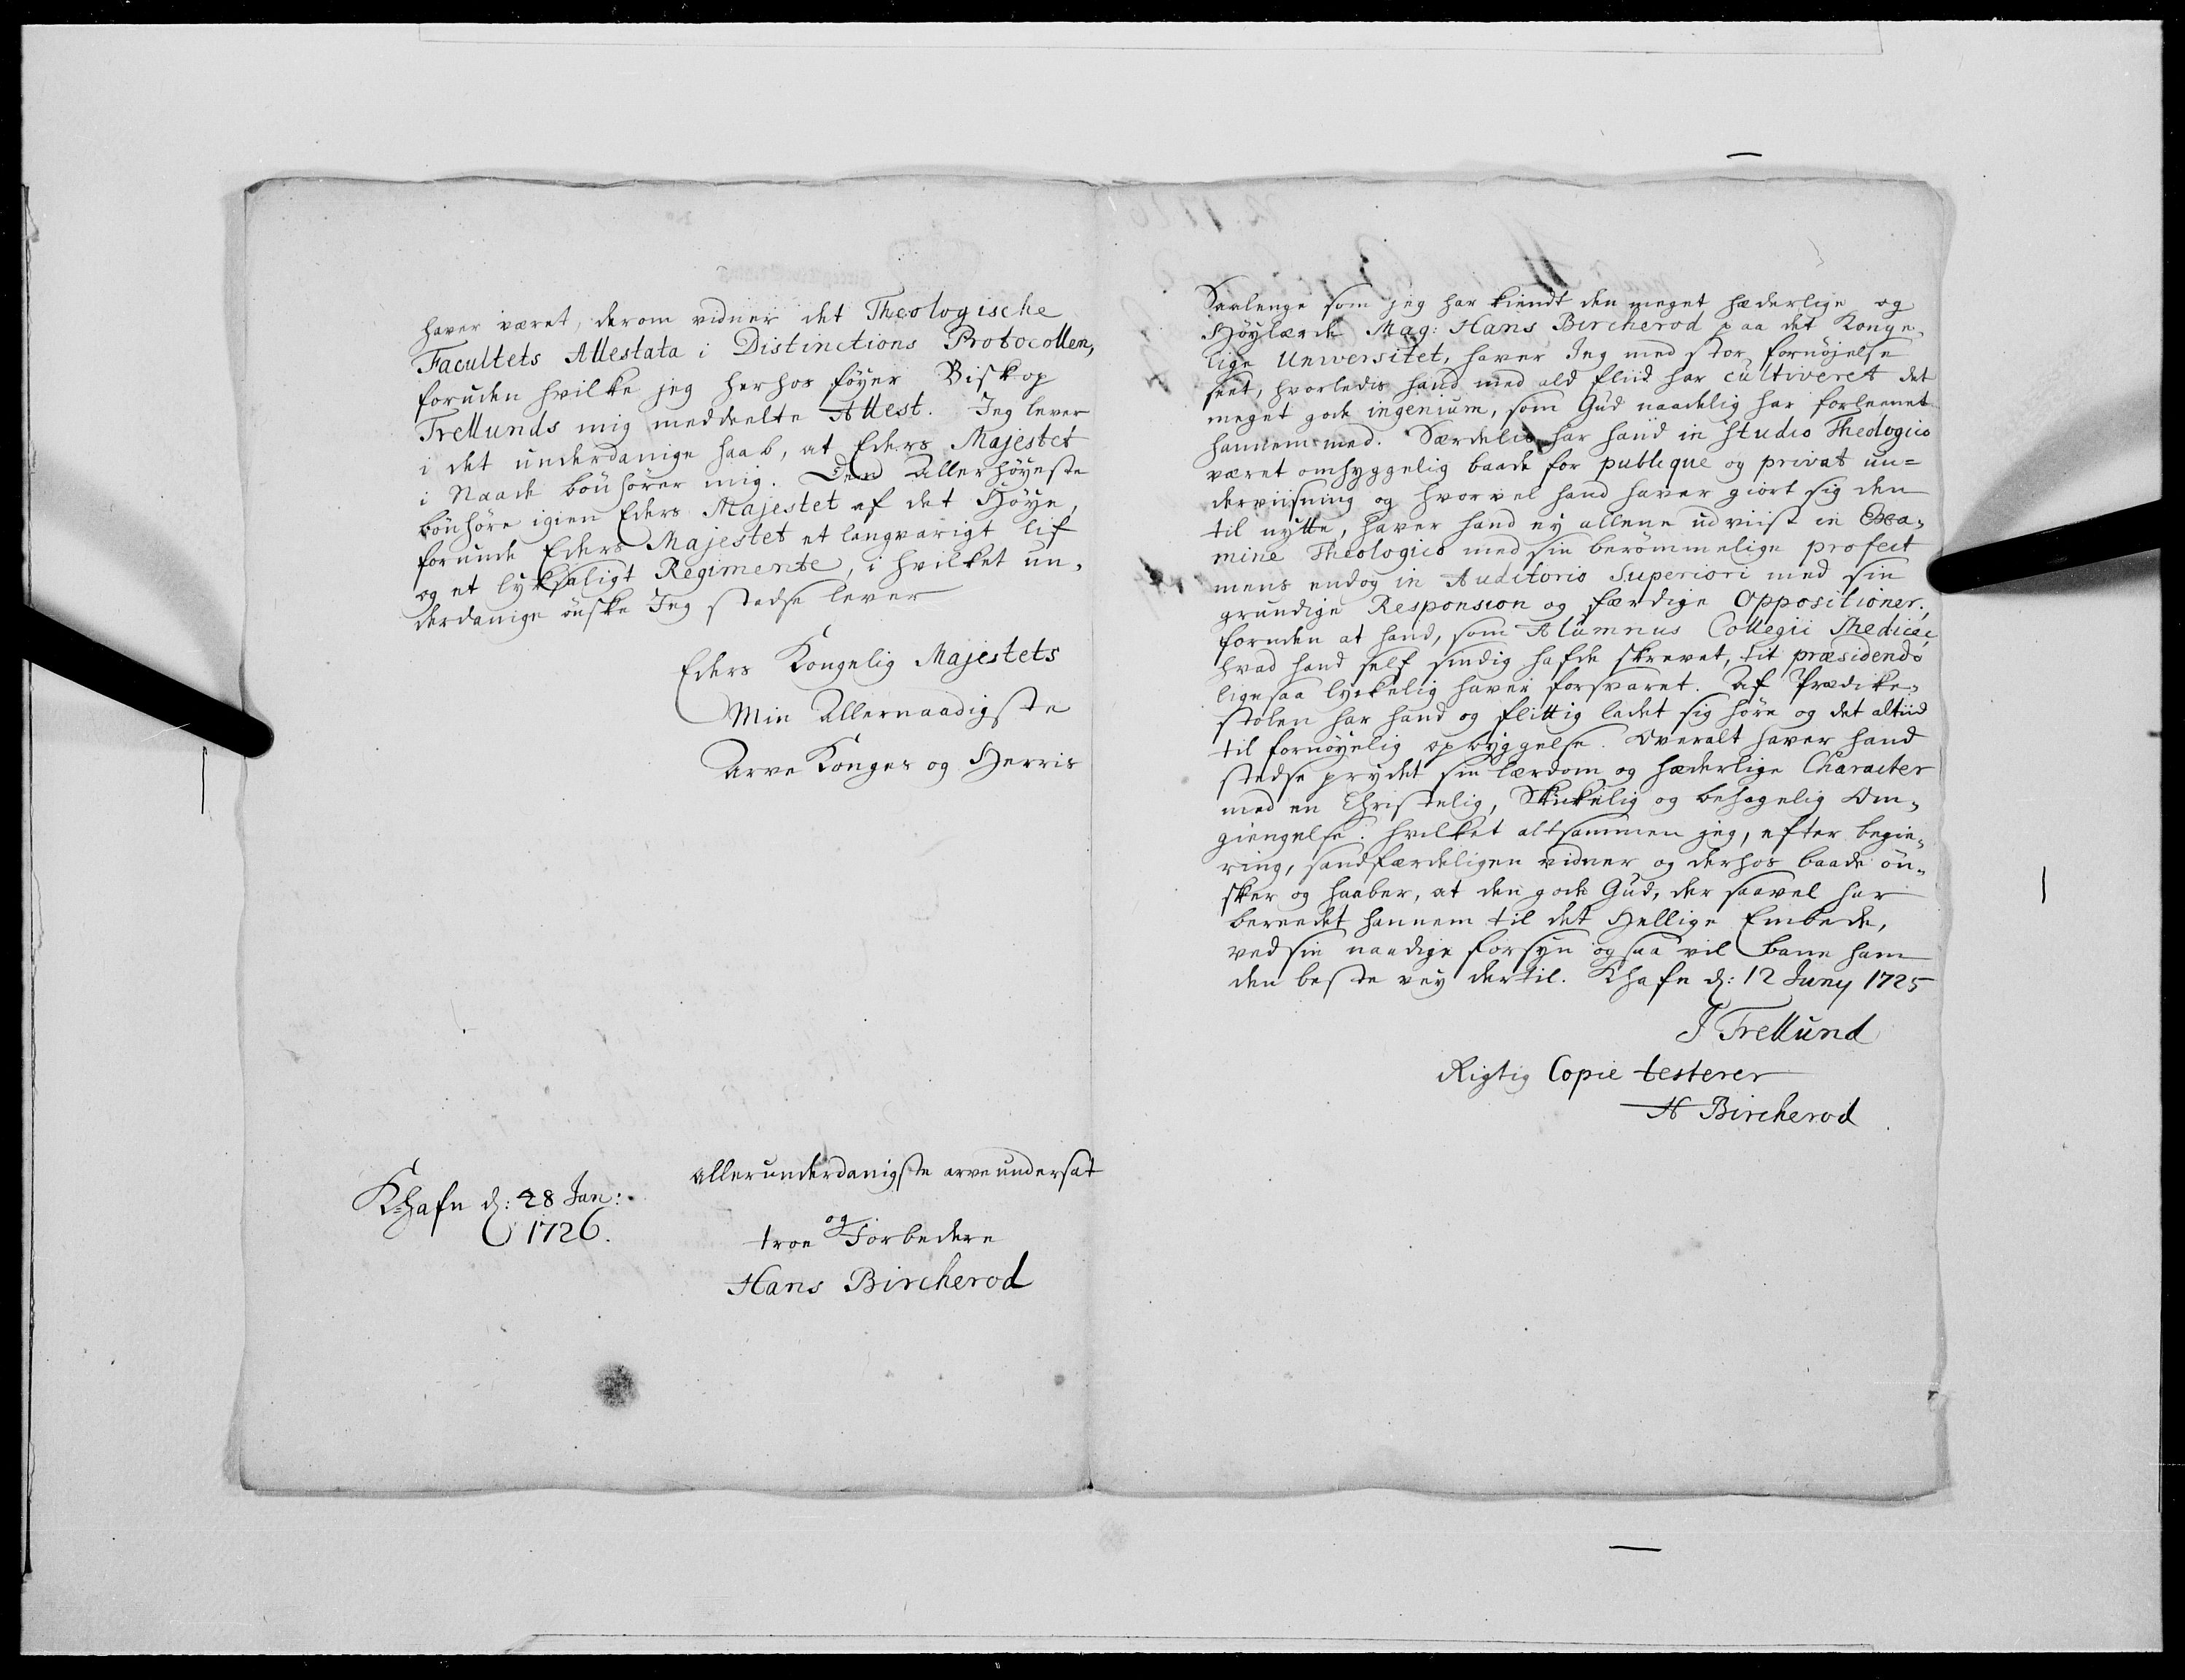 haver været, derom vidner det Theologische
Facultets Attestata i Distinctions Protocollen,
foruden hvilke jeg herhos föyer Biskop
Trellunds mig meddeelte Attest. Jeg lever
i det underdanige haab, at Eders Majestet
i Naade bönhörer mig. Den Allerhöyeste
bönhöre igien Eders Majestet af det Höye,
forunde Eders Majestet et langvarigt lif
og et lyksaligt Regimente, i hvilket un-
derdanige önske Jeg stedse lever
Eders Kongelig Majestets
Min Allernaadigste
Arve Konges og Herris
allerunderdanigste arveundersat
og
troe Forbedere
Hans Bircherod
Khafn d: 28 Jan:
1726.
Saalenge som jeg har kiendt den meget hæderlige og
Höylærde Mag: Hans Bircherod paa det Konge-
lige Universitet, haver Jeg med stor fornöjelse
seet, hvorledis hand med ald fliid har cultiveret det
meget gode ingenium, som Gud naadelig har forleenet
hannem med. Særdelis har hand in Studio Theologico
været omhyggelig baade for publique og privat un=
derviisning og hvorvel hand haver giort sig den
til nytte, haver hand ey allene udviist in Exa-
mine Theologico med sin berömmelige profect
mens endog in Auditorio Superiori med sin
grundige Responsion og færdige Oppositioner,
foruden at hand, som Alumnus Collegii Medicei,
hvad hand self sindig hafde skrevet, tit præsidendo
ligesaa lyckelig haver forsvaret. Af Prædike-
stolen har hand og flittig ladet sig höre og det altiid
til fornöyelig opbyggelse. Overalt haver hand
stedse prydet sin lærdom og hæderlige Character
med en Christelig, Skickelig og behagelig Om-
giengelse: hvilket altsammen jeg, efter begie-
ring, sandfærdeligen vidner og derhos baade ön-
sker og haaber, at den gode Gud, der saavel har
bereedet hannem til det Hellige Embede,
ved sin naadige forsyn ogsaa vil bane ham
den beste vey dertil. Khafn d: 12 Juny 1725
J Trellund
Rigtig Copie testerer
H Bircherod